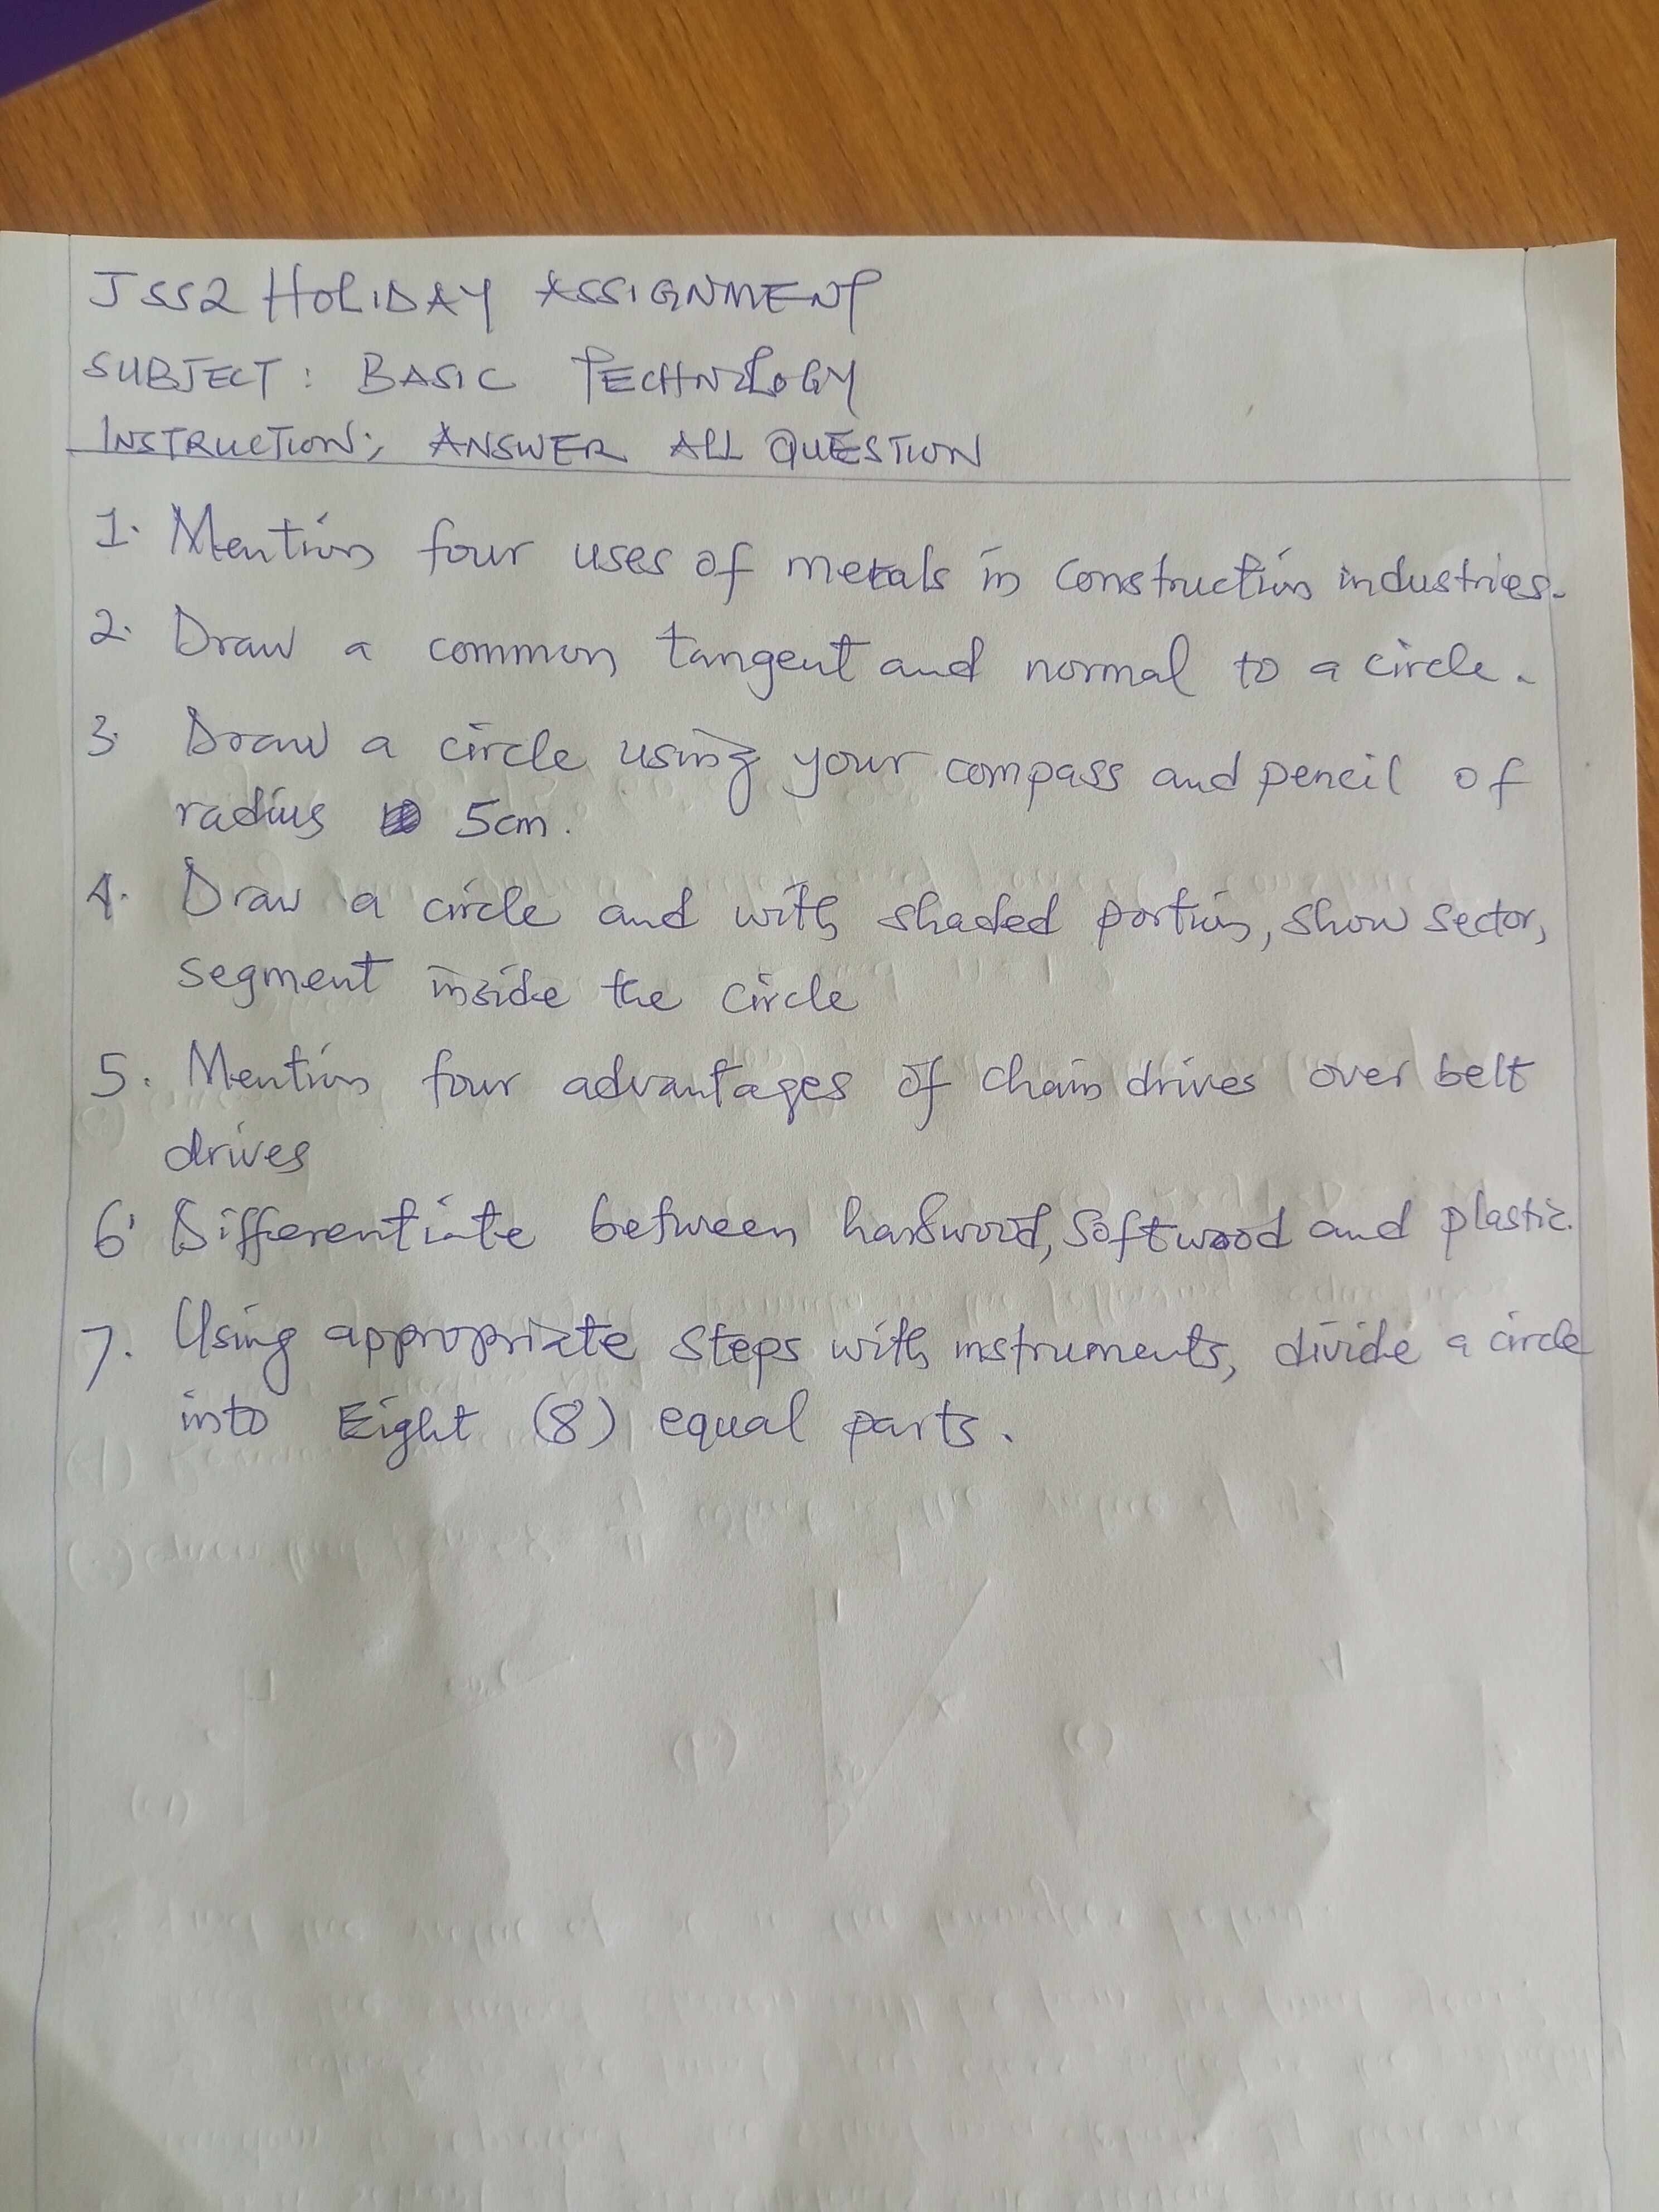 JSS2 HOLIDAY ASSIGNMENT
SUBJECT: BASIC TECHNOLOGY
INSTRUCTION; ANSWER ALL QUESTION
1. Mention four uses of metals in construction industries.
2. Draw a common tangent and normal to a circle.
3. Draw a circle using your compass and pencil of
radius 5cm.
4. Draw a circle and with shaded portion, show sector,
segment inside the circle
5. Mention four advantages of chain drives over belt
drives
6. Differentiate between hardwood, Softwood and plastic.
7. Using appropriate steps with instruments, divide a circle
into Eight (8) equal parts.